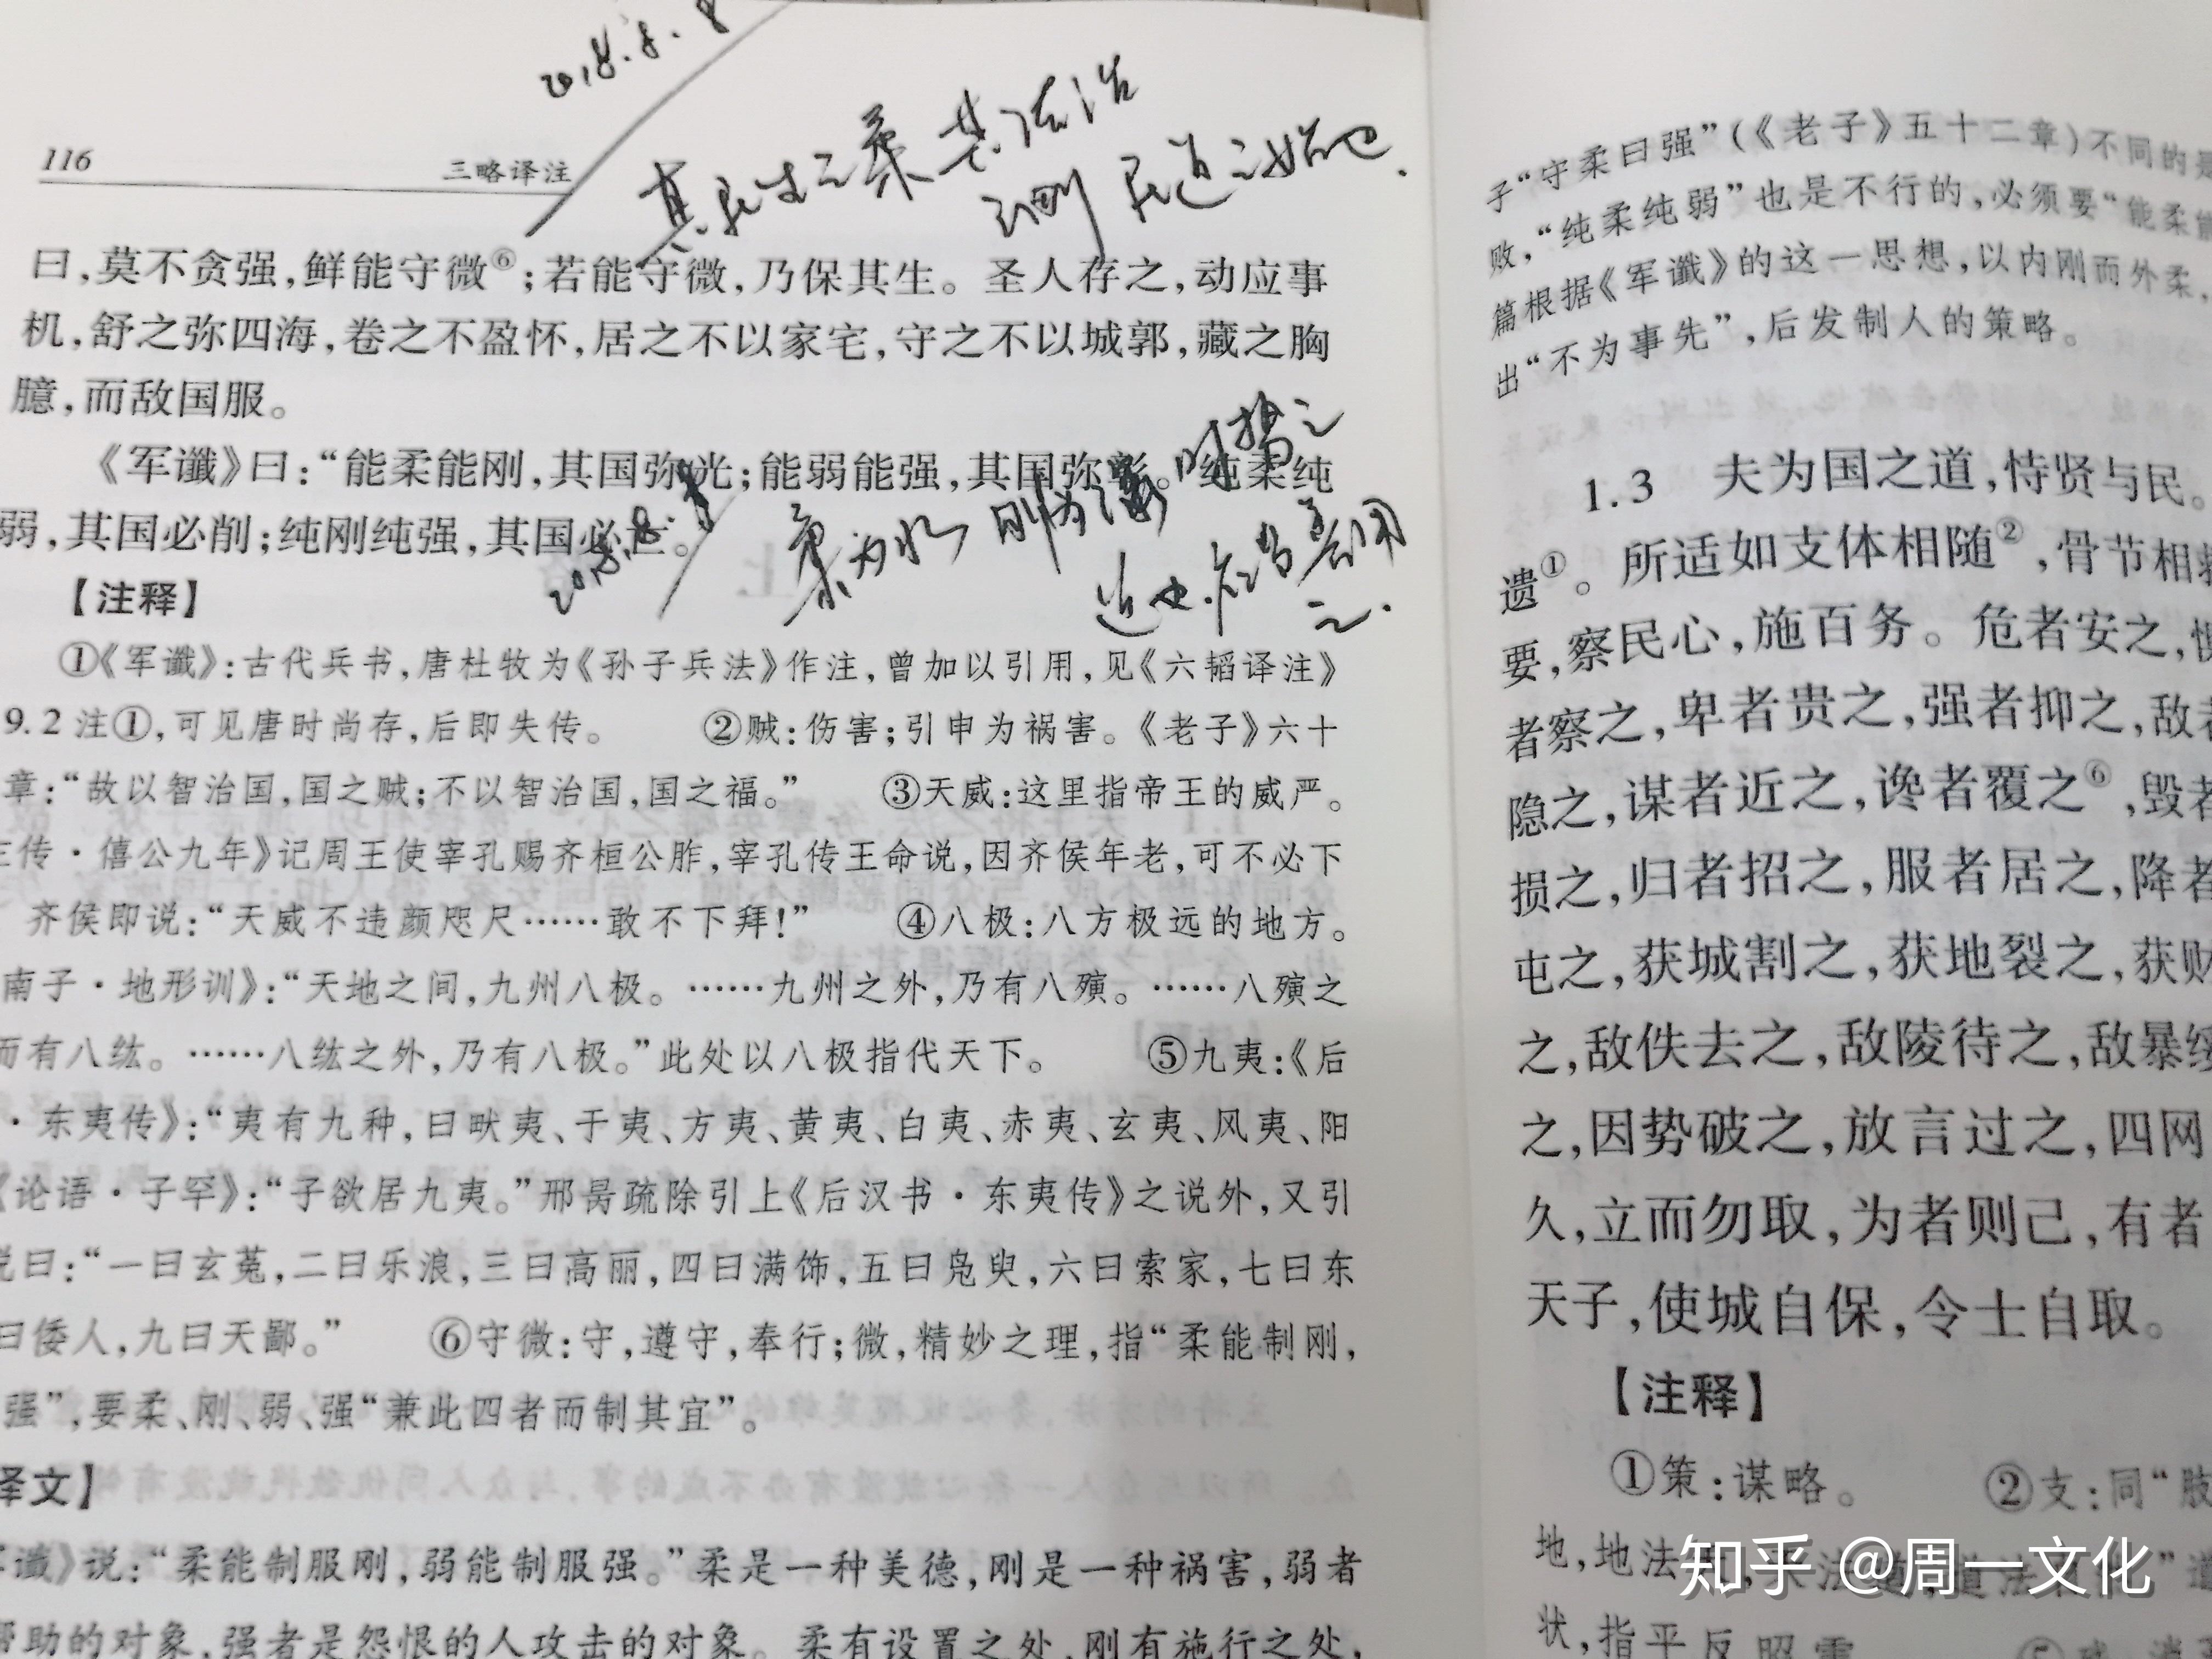 2018.8.8
116
三略译注
其民生之柔 其法治
之刚 民道之始也.
曰,莫不贪强,鲜能守微⑥;若能守微,乃保其生。圣人存之,动应事
机,舒之弥四海,卷之不盈怀,居之不以家宅,守之不以城郭,藏之胸
臆,而敌国服。
《军谶》曰:“能柔能刚,其国弥光;能弱能强,其国弥彰。纯柔纯
弱,其国必削;纯刚纯强,其国必亡。
2018.8.
柔为水 刚为
之.
【注释】
①《军谶》:古代兵书,唐杜牧为《孙子兵法》作注,曾加以引用,见《六韬译注》
9.2 注①,可见唐时尚存,后即失传。 ②贼:伤害;引申为祸害。《老子》六十
章:“故以智治国,国之贼;不以智治国,国之福。” ③天威:这里指帝王的威严。
传·僖公九年》记周王使宰孔赐齐桓公胙,宰孔传王命说,因齐侯年老,可不必下
齐侯即说:“天威不违颜咫尺……敢不下拜!” ④八极:八方极远的地方。
南子·地形训》:“天地之间,九州八极。……九州之外,乃有八殥。……八殥之
而有八纮。……八纮之外,乃有八极。”此处以八极指代天下。 ⑤九夷:《后
·东夷传》:“夷有九种,曰畎夷、于夷、方夷、黄夷、白夷、赤夷、玄夷、风夷、阳
《论语·子罕》:“子欲居九夷。”邢昺疏除引上《后汉书·东夷传》之说外,又引
说曰:“一曰玄菟,二曰乐浪,三曰高丽,四曰满饰,五曰凫臾,六曰索家,七曰东
曰倭人,九曰天鄙。” ⑥守微:守,遵守,奉行;微,精妙之理,指“柔能制刚,
强”,要柔、刚、弱、强“兼此四者而制其宜”。
译文】
谶》说:“柔能制服刚,弱能制服强。”柔是一种美德,刚是一种祸害,弱者
帮助的对象,强者是怨恨的人攻击的对象。柔有设置之处,刚有施行之处,
子“守柔曰强”(《老子》五十二章)不同的是
败,“纯柔纯弱”也是不行的,必须要“能柔能
篇根据《军谶》的这一思想,以内刚而外柔,
出“不为事先”,后发制人的策略。
1.3 夫为国之道,恃贤与民。
遗①。所适如支体相随②,骨节相救
要,察民心,施百务。危者安之,惧
者察之,卑者贵之,强者抑之,敌者
隐之,谋者近之,谗者覆之⑥,毁者
损之,归者招之,服者居之,降者
屯之,获城割之,获地裂之,获财
之,敌佚去之,敌陵待之,敌暴绥
之,因势破之,放言过之,四网
久,立而勿取,为者则己,有者
天子,使城自保,令士自取。
【注释】
①策:谋略。 ②支:同“肢
地,地法
状,指平反昭雪
知乎 @周一文化